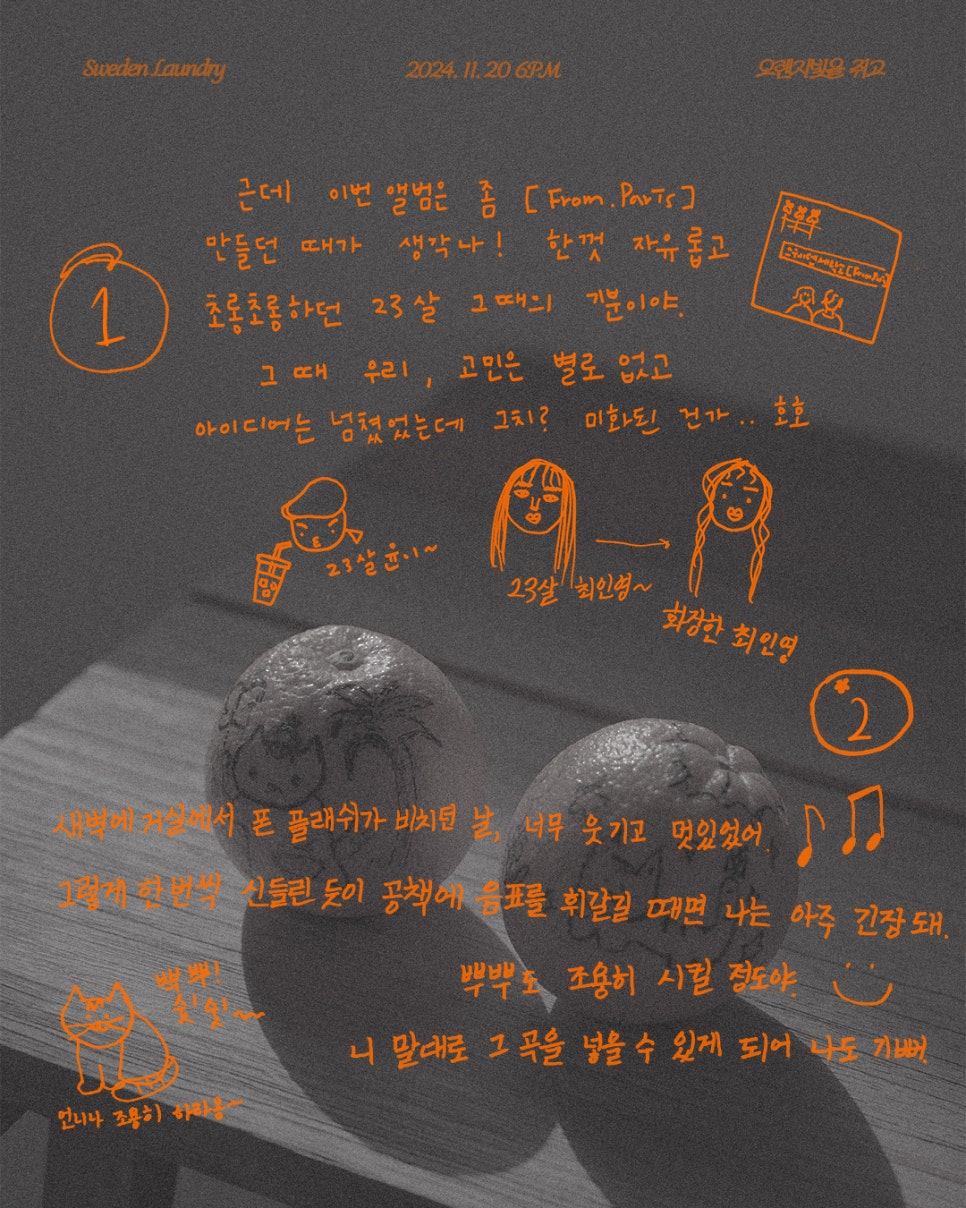 Sweden Laundry
2024. 11. 20 6PM
오렌지빛을 쥐고
1
근데 이번 앨범은 좀 [From.Paris]
만들던 때가 생각나! 한껏 자유롭고
초롱초롱하던 23살 그때의 기분이야.
그 때 우리, 고민은 별로 없고
아이디어는 넘쳤었는데 그치? 미화된 건가.. 호호
23살 윤이~
23살 최인영~
화장한 최인영
2
새벽에 거실에서 폰 플래쉬가 비치던 날, 너무 웃기고 멋있었어.
그렇게 한번씩 신들린 듯이 공책에 음표를 휘갈길 때면 나는 아주 긴장돼.
뿌뿌도 조용히 시킬 정도야.
뿌뿌!
쉿 쉿~
니 말대로 그 곡을 넣을 수 있게 되어 나도 기뻐.
언니나 조용히 하라옹~